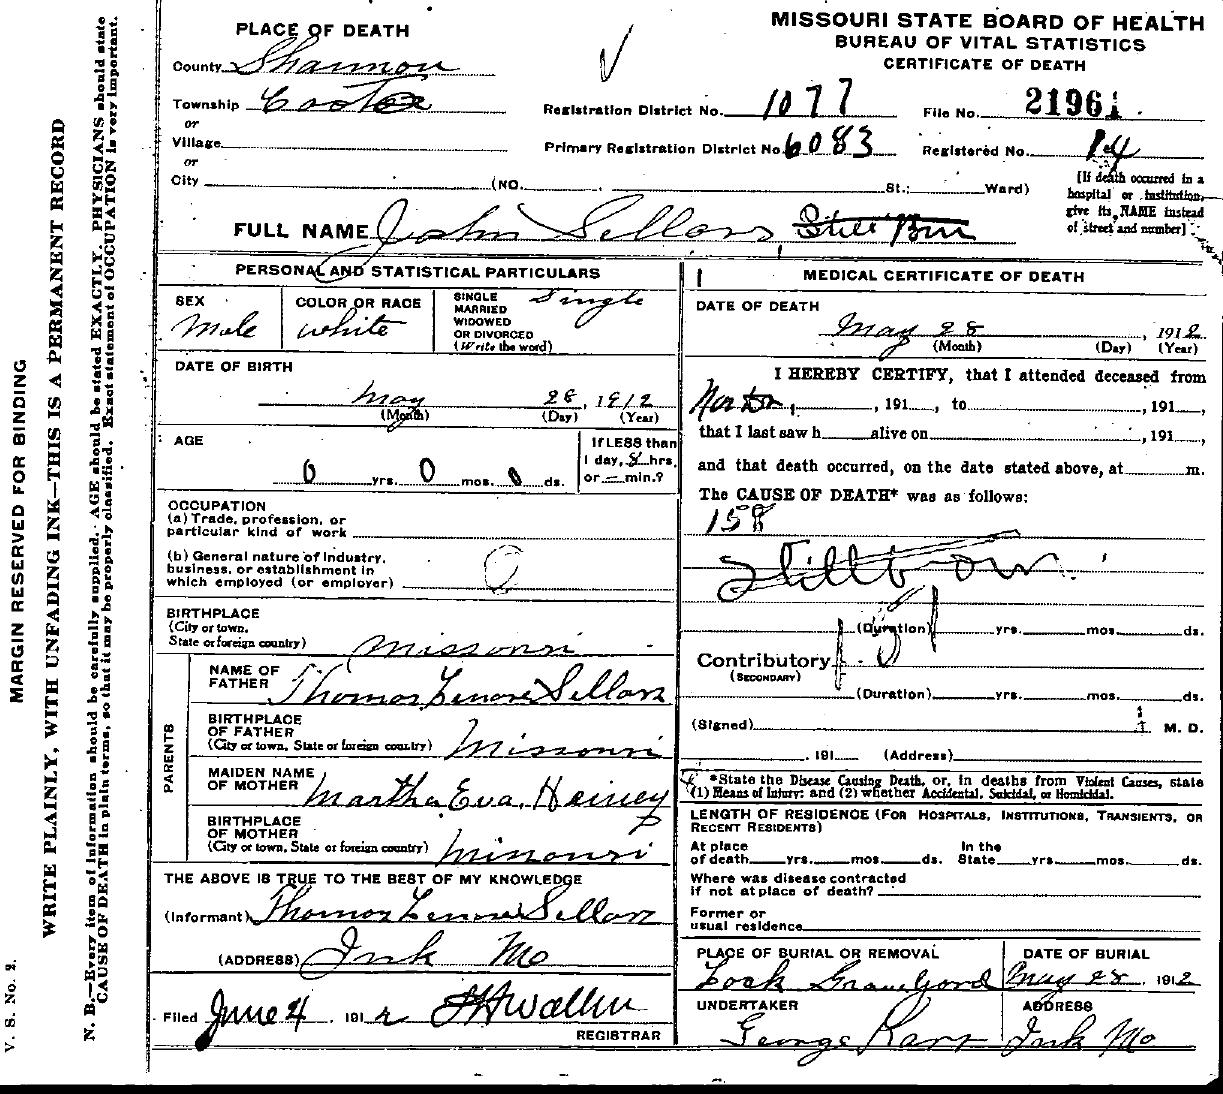 MARGIN RESERVED FOR BINDING
WRITE PLAINLY, WITH UNFADING INK—THIS IS A PERMANENT RECORD
N. B.—Every item of information should be carefully supplied. AGE should be stated EXACTLY. PHYSICIANS should state
CAUSE OF DEATH in plain terms, so that it may be properly classified. Exact statement of OCCUPATION is very important.
V. S. No. 2.
MISSOURI STATE BOARD OF HEALTH
BUREAU OF VITAL STATISTICS
CERTIFICATE OF DEATH
PLACE OF DEATH
County Shannon
Township
or
Village
or
City (NO. St.; Ward)
Registration District No. 1077 File No. 21961
Primary Registration District No. 6083 Registered No. 14
[If death occurred in a
hospital or institution,
give its NAME instead
of street and number]
FULL NAME John Sellars, Still Born
PERSONAL AND STATISTICAL PARTICULARS
SEX
Male
COLOR OR RACE
White
SINGLE
MARRIED
WIDOWED
OR DIVORCED
(Write the word)
Single
DATE OF BIRTH
May 28, 1912
(Month) (Day) (Year)
AGE
0 yrs. 0 mos. 0 ds.
If LESS than
1 day, hrs.
or — min.?
OCCUPATION
(a) Trade, profession, or
particular kind of work
(b) General nature of industry,
business, or establishment in
which employed (or employer)
BIRTHPLACE
(City or town,
State or foreign country) Missouri
PARENTS
NAME OF
FATHER Thomas Lenore Sellars
BIRTHPLACE
OF FATHER
(City or town, State or foreign country) Missouri
MAIDEN NAME
OF MOTHER Martha Eva
BIRTHPLACE
OF MOTHER
(City or town, State or foreign country) Missouri
THE ABOVE IS TRUE TO THE BEST OF MY KNOWLEDGE
(Informant) Thomas Lenore Sellars
(ADDRESS) Ink Mo
Filed June 4, 1912
REGISTRAR
MEDICAL CERTIFICATE OF DEATH
DATE OF DEATH
May 28, 1912
(Month) (Day) (Year)
I HEREBY CERTIFY, that I attended deceased from
, 191 , to , 191 ,
that I last saw h alive on , 191 ,
and that death occurred, on the date stated above, at m.
The CAUSE OF DEATH* was as follows:
158
Stillborn
(Duration) yrs. mos. ds.
Contributory
(SECONDARY)
(Duration) yrs. mos. ds.
(Signed) M. D.
, 191 (Address)
*State the Disease Causing Death, or, in deaths from Violent Causes, state
(1) Means of Injury; and (2) whether Accidental, Suicidal, or Homicidal.
LENGTH OF RESIDENCE (FOR HOSPITALS, INSTITUTIONS, TRANSIENTS, OR
RECENT RESIDENTS)
At place In the
of death yrs. mos. ds. State yrs. mos. ds.
Where was disease contracted
if not at place of death?
Former or
usual residence
PLACE OF BURIAL OR REMOVAL
DATE OF BURIAL
Graveyard May 28, 1912
UNDERTAKER
George Karr
ADDRESS
Ink Mo